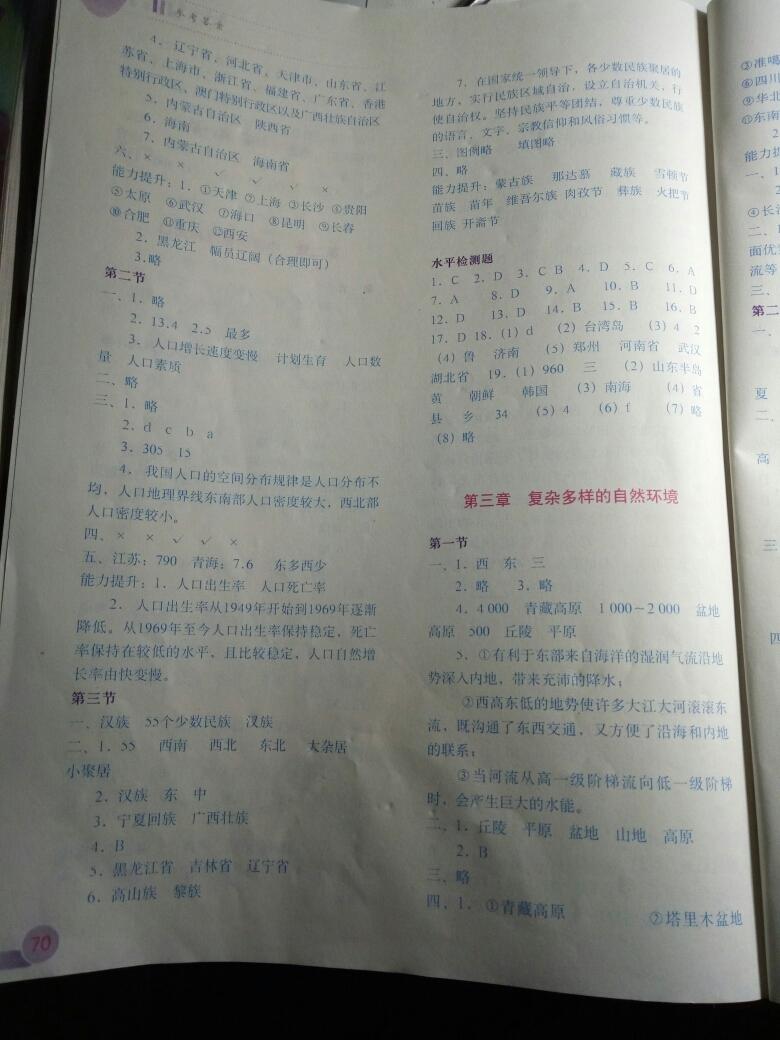 参考答案
4、辽宁省、河北省、天津市、山东省、江
苏省、上海市、浙江省、福建省、广东省、香港
特别行政区、澳门特别行政区以及广西壮族自治区
5、内蒙古自治区 陕西省
6、海南
7、内蒙古自治区 海南省
六、× × ✓ ✓ ✓ ×
能力提升：1．①天津 ②上海 ③长沙 ④贵阳
⑤太原 ⑥武汉 ⑦海口 ⑧昆明 ⑨长春
⑩合肥 ⑪重庆 ⑫西安
2．黑龙江 幅员辽阔（合理即可）
3.略
第二节
一、1．略
2．13.4 2.5 最多
3、人口增长速度变慢 计划生育 人口数
量 人口素质
二、略
三、1．略
2．d c b a
3．305 15
4、我国人口的空间分布规律是人口分布不
均，人口地理界线东南部人口密度较大，西北部
人口密度较小。
四、× × ✓ ✓ ×
五、江苏：790 青海：7.6 东多西少
能力提升：1．人口出生率 人口死亡率
2．人口出生率从1949年开始到1969年逐渐
降低。从1969年至今人口出生率保持稳定，死亡
率保持在较低的水平，且比较稳定，人口自然增
长率由快变慢。
第三节
一、汉族 55个少数民族 汉族
二、1．55 西南 西北 东北 大杂居
小聚居
2．汉族 东 中
3．宁夏回族 广西壮族
4．B
5．黑龙江省 吉林省 辽宁省
6．高山族 黎族
70
7．在国家统一领导下，各少数民族聚居的
地方，实行民族区域自治，设立自治机关，行
使自治权。坚持民族平等团结，尊重少数民族
的语言、文字、宗教信仰和风俗习惯等。
三、图例略 填图略
四、略
能力提升：蒙古族 那达慕 藏族 雪顿节
苗族 苗年 维吾尔族 肉孜节 彝族 火把节
回族 开斋节
水平检测题
1．C 2．D 3．C B 4．D 5．C 6．A
7．A 8．D 9．A 10．B 11．D
12．D 13．D 14．B 15．B 16．B
17．D 18．（1）d （2）台湾岛 （3）4 2
（4）鲁 济南 （5）郑州 河南省 武汉
湖北省 19．（1）960 三 （2）山东半岛
黄 朝鲜 韩国 （3）南海 （4）省
县 乡 34 （5）4 （6）f （7）略
（8）略
第三章 复杂多样的自然环境
第一节
一、1．西 东 三
2．略 3．略
4．4 000 青藏高原 1 000～2 000 盆地
高原 500 丘陵 平原
5．①有利于东部来自海洋的湿润气流沿地
势深入内地，带来充沛的降水；
②西高东低的地势使许多大江大河滚滚东
流，既沟通了东西交通，又方便了沿海和内地
的联系；
③当河流从高一级阶梯流向低一级阶梯
时，会产生巨大的水能。
二、1．丘陵 平原 盆地 山地 高原
2．B
三、略
四、1．①青藏高原 ②塔里木盆地
③准噶
⑥四川
⑨华北
⑪东南
能力
一、1
④长江
二、
面优
流等
三、
第二
一、
夏
二、
高
三
四